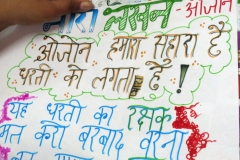 नारा लेखन ओजोन
ओजोन हमारा सहारा है
धरती को लगता है !
यह धरती का रक्षक
मत करो बरबाद वरना